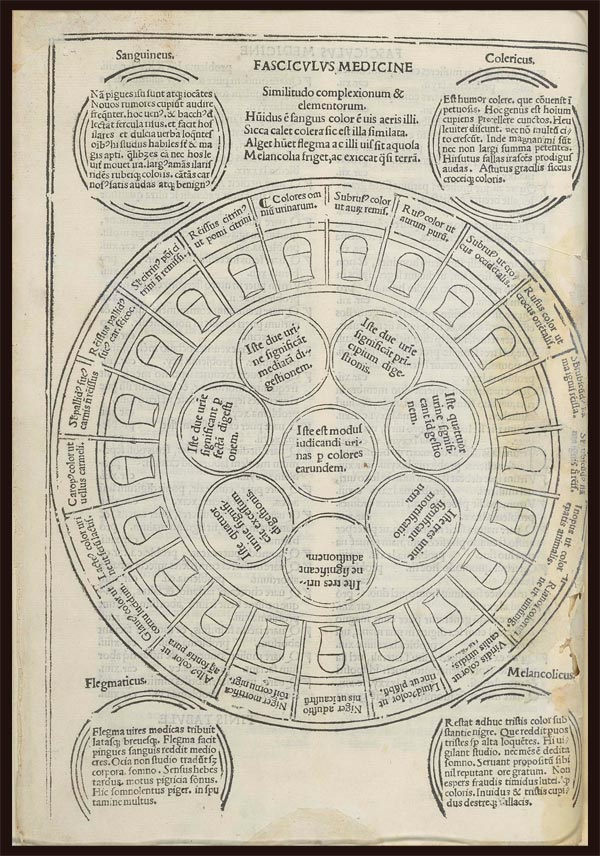 Sanguineus.
FASCICVLVS MEDICINE
Colericus.
Nā pigues isti sunt atqȝ iocātes
Nouos rumores cupiūt audire
freq̄nter. hoc uen⁹. & bacch⁹ d
lectāt fercula risus. et facit hos
ilares et dulcia uerba loq̄ntes
oib⁹ hi studiis habiles sūt & ma
gis apti. qlibȝ es cā nec hos le
uif mouet ira. larg⁹ amās ilaris
ridēs rubeiqȝ coloris. cātās car
nos⁹ satis audas atqȝ benign⁹
Similitudo complexionum &
elementorum.
Hūidus ē sangus calor ē uis aeris illi.
Sicca calet colera sic est illa similata.
Alget hūet flegma ac illi uis sit aquola
Melancolia friget, ac exiccat q̄si terrā.
Est humor colere. que cōuenit ī
petuosis. Hoc genus est hoium
cupiens precellere cunctos. Hi
leuiter discunt. nec nō multū ci
to crescūt. Inde magnanimi sūt
nec non largi summa petentes.
Hirsutus fallas irascēs prodigus
audas. Astutus gracilis siccus
croceiqȝ coloris.
¶ Colores om
niū urinarum.
Subruf⁹ color
ut auȝ remis.
Ruf⁹ color ut
aurum purū.
Subrub⁹ ut cro
cus occidētalis.
Rubius color ut
crocus oriētalis
Inopus ut color
epatis animalis.
Viridis color ut
caulis uiridis.
Liuid⁹ color ut
lineut plūbū.
Niger adustio
nis ut icaustū
Niger mortifica
Alb⁹ color ut
aq̄ fontis pura
Glauc⁹ color ut
cornu lucidum.
Lacte⁹ color
Carop⁹ color ut
uellus cameli.
St pallid⁹ suc⁹
carnis ñ reissus
Reissus pallid⁹
suc⁹ car. seicoc.
St citrin⁹ pōi ci
trini ñ remissi.
Reissus citrin⁹
ut pomi citrini
Iste due uri-
ne significāt
mediatā di-
gestionem.
Iste due urie
significāt pri
cipium dige-
stionis.
Iste quatuor
urine signifi-
cant idgestio
nem.
Iste tres urine
significant
mortificatio
nem.
Iste tres uri--
ne significant
adustionem.
Iste quatuor
urine signifi-
cāt excessum
digestionis.
Iste due urie
significant p
fectā digesti
onem.
Iste est modus
iudicandi uri-
nas p colores
earundem.
Flegmaticus.
Melancolicus.
Flegma uires modicas tribuit
latasqȝ breuesqȝ. Flegma facit
pingues sanguis reddit medio
cres. Ocia non studio tradūt sȝ
corpora. somno. Sensus hebes
tardus. motus pigricia sōnus.
Hic somnolentus piger. in spu
tamine multus.
Restat adhuc tristis color sub
stantie nigre. Que reddit puos
tristes sp alta loquētes. Hi ui
gilant studio. nec mēs ē dedita
somno. Seruant propositū sibi
nil reputant ore gratum. Non
espers fraudis timidus lutei qȝ
coloris. Inuidus & tristis cupi
dus destreqȝ fallacis.